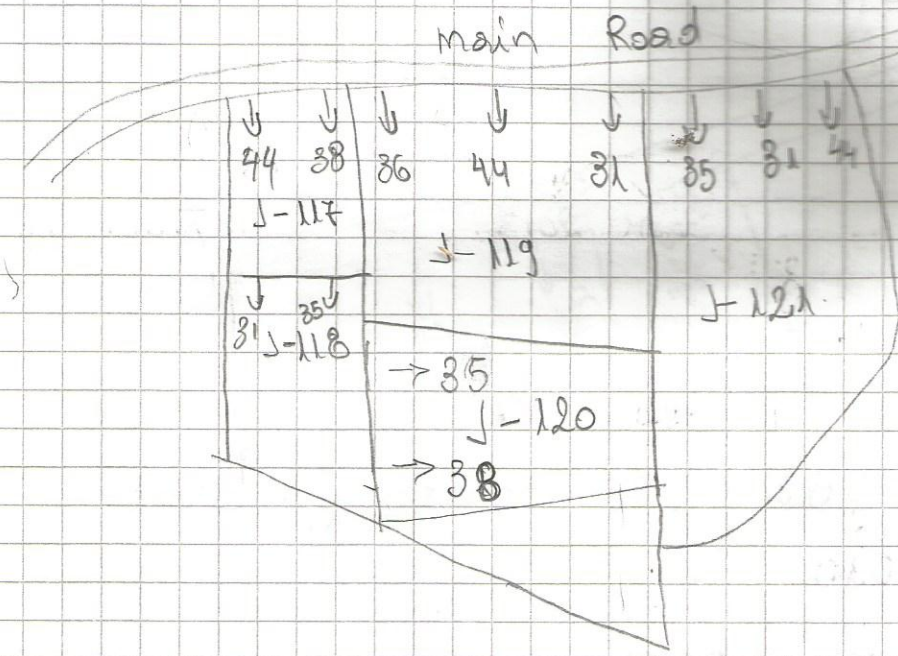 Main Road
44 38 36 44 31 35 31 44
J-117
J-119
31 35
J-121
J-118
35
J-120
38